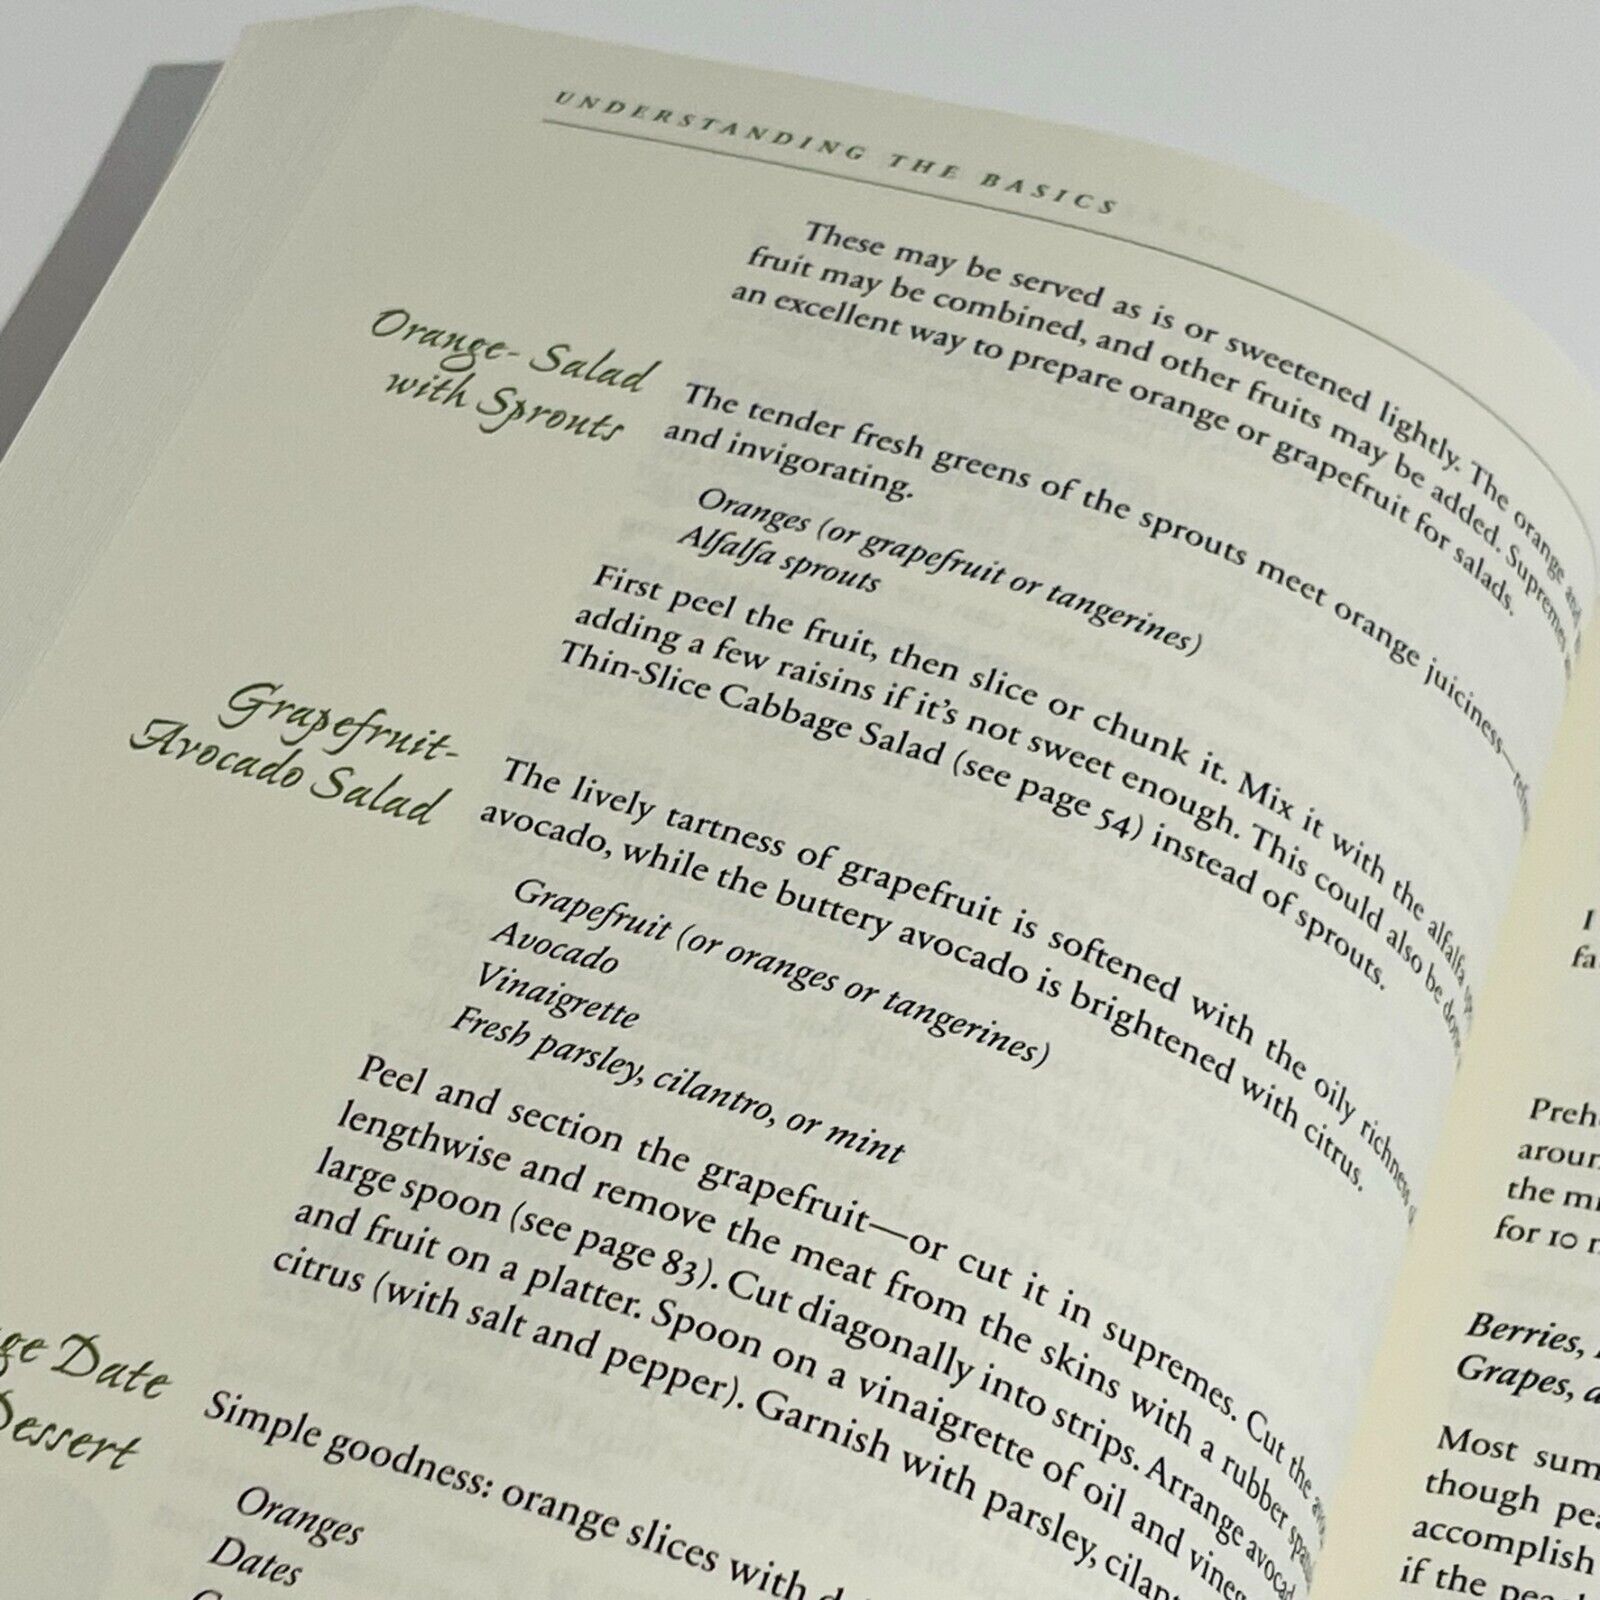 UNDERSTANDING THE BASICS
These may be served as is or sweetened lightly. The orange and
fruit may be combined, and other fruits may be added. Supremes
an excellent way to prepare orange or grapefruit for salads.
Orange- Salad
with Sprouts
The tender fresh greens of the sprouts meet orange juiciness—
and invigorating.
Oranges (or grapefruit or tangerines)
Alfalfa sprouts
First peel the fruit, then slice or chunk it. Mix it with the alfalfa
adding a few raisins if it's not sweet enough. This could also be done
Thin-Slice Cabbage Salad (see page 54) instead of sprouts.
Grapefruit-
Avocado Salad
The lively tartness of grapefruit is softened with the oily richness
avocado, while the buttery avocado is brightened with citrus.
Grapefruit (or oranges or tangerines)
Avocado
Vinaigrette
Fresh parsley, cilantro, or mint
Peel and section the grapefruit—or cut it in supremes. Cut the
lengthwise and remove the meat from the skins with a rubber
large spoon (see page 83). Cut diagonally into strips. Arrange
and fruit on a platter. Spoon on a vinaigrette of oil and
citrus (with salt and pepper). Garnish with parsley,
ge Date
Dessert
Simple goodness: orange slices with
Oranges
Dates
I
fa
Preh
arour
the mi
for 10
Berries,
Grapes,
Most sum
though pea
accomplish
if the peac